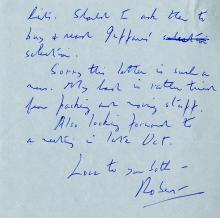 Lists. Should I ask them to
buy & read Jeffares'
selection.
Sorry this letter is such a
mess. My back is rather tired
from packing and moving stuff.
Also looking forward to
a meeting in late Oct.
Love to you both -
Robert